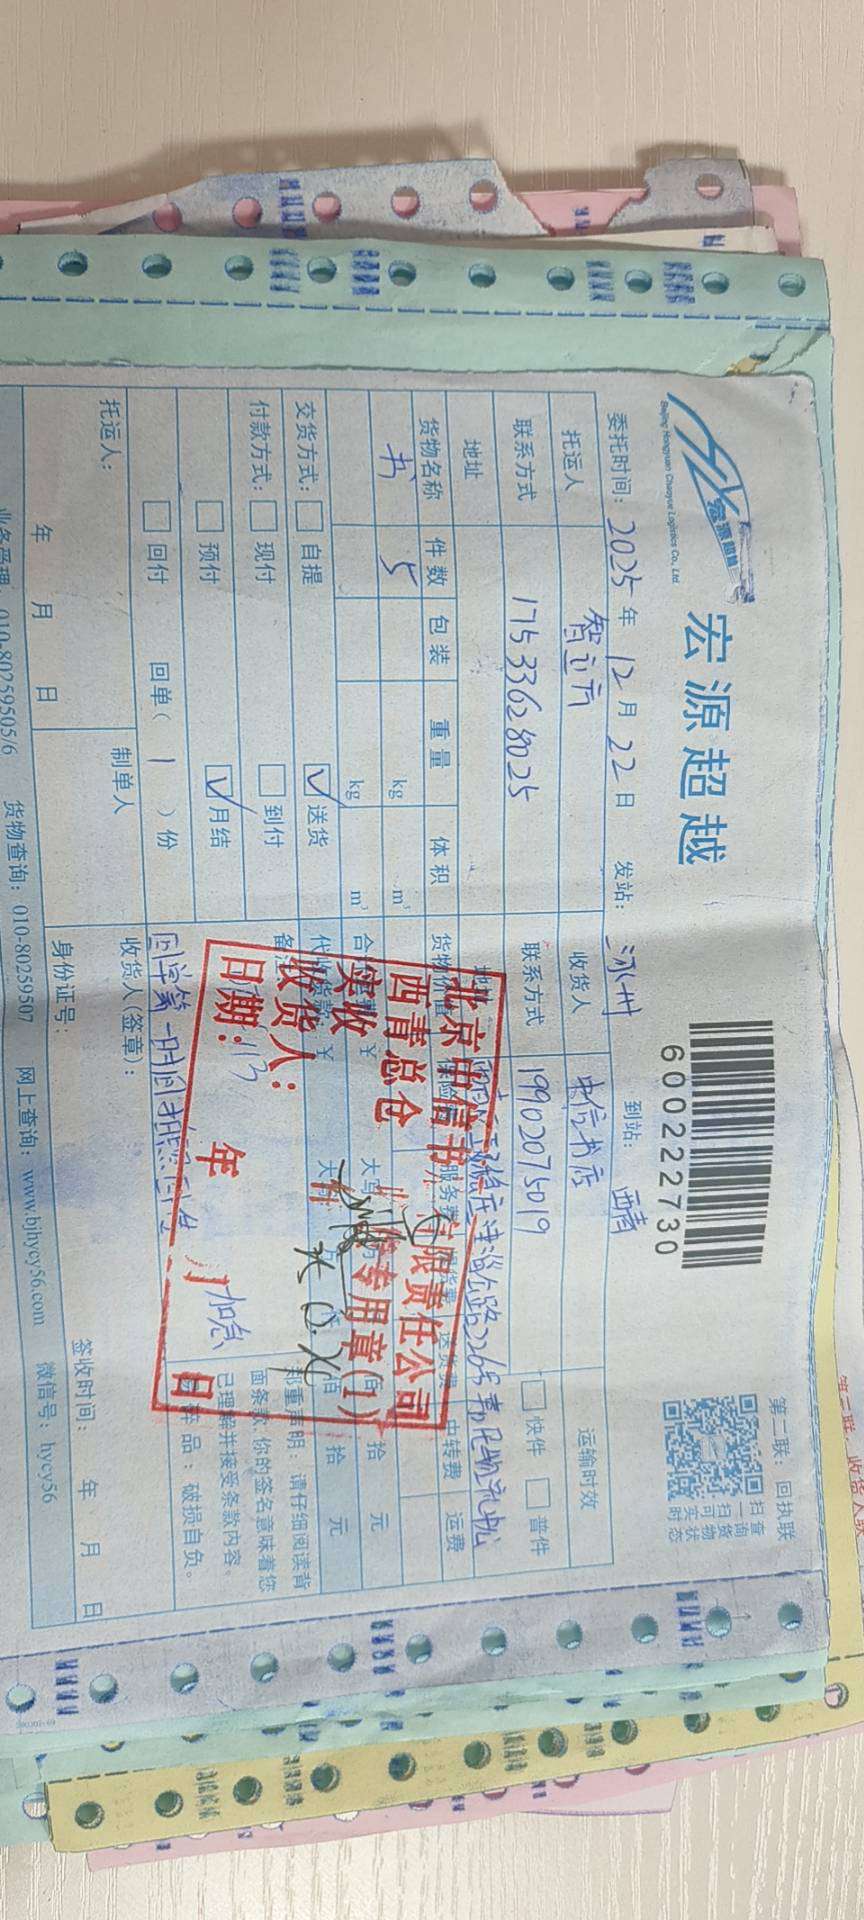 宏源超越
宏源超越
Beijing Hongyuan Chaoyue Logistics Co., Ltd.
6000222730
第二联：回执联
扫查
一询
扫货
可物
实状
时态
委托时间：2025年12月22日 发站： 到站：西青
托运人 收货人 中信书店 运输时效
联系方式 17533628025 联系方式 19902075019 快件 普件
地址 地址
货物名称 件数 包装 重量 体积 货物价值 服务费 送货费 中转费 运费
书 5 kg m³
kg m³ 大写 拾 元
交货方式： 自提 送货 代收货款：¥ 大写 万 佰 拾 元
付款方式： 现付 到付 备注 加急
预付 月结
回付 回单（1）份
郑重声明：请仔细阅读背
面条款，你的签名意味着您
已理解并接受条款内容。
易碎品：破损自负。
北京中信书 有限责任公司
西青总仓 专用章(1)
实收
收货人：
日期： 年 月 日
托运人： 制单人 收货人(签章)：
年 月 日 身份证号： 签收时间： 年 月 日
业务受理：010-80259505/6 货物查询：010-80259507 网上查询：www.bjhycy56.com 微信号：hycy56